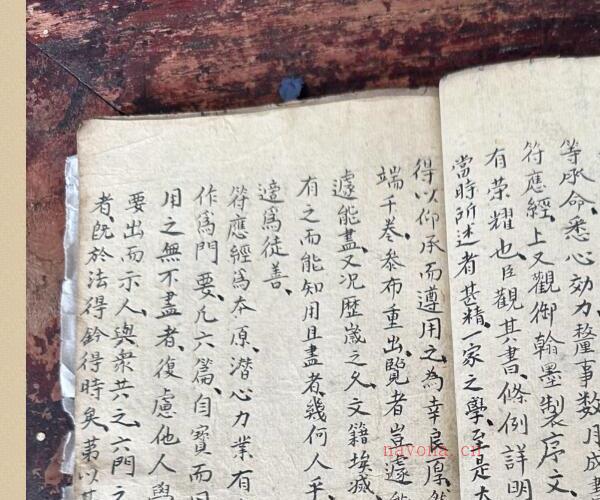 等承命、悉心効力、釐事数月成書
符應經、上又觀御翰墨製序文、
有荣耀也、臣觀其書、條例詳明
當時所述者甚精、一家之學、至是大
得以仰承而遵用之、為幸良厚、然
端千巻、叅布重出、覽者豈遽能
遽能盡、又况歷歲之久、文籍埃滅
有之而能知用且盡者、幾何人乎、
適爲徒善、
符應經爲本原、潜心力業有
作爲門要、凡六篇、自寳而用
用之無不盡者、復慮他人學
要出而示人、與衆共之、六門之
者、既於法得鈐得時矣、第以其
nayona.cn